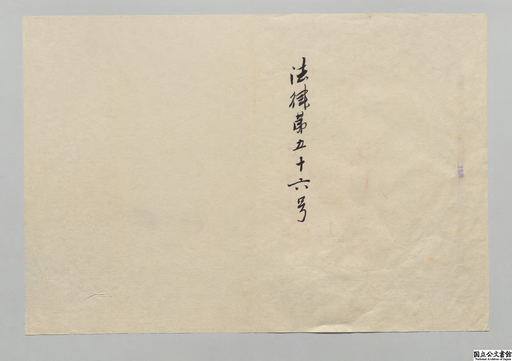 法律第五十六号
国立公文書館
National Archives of Japan